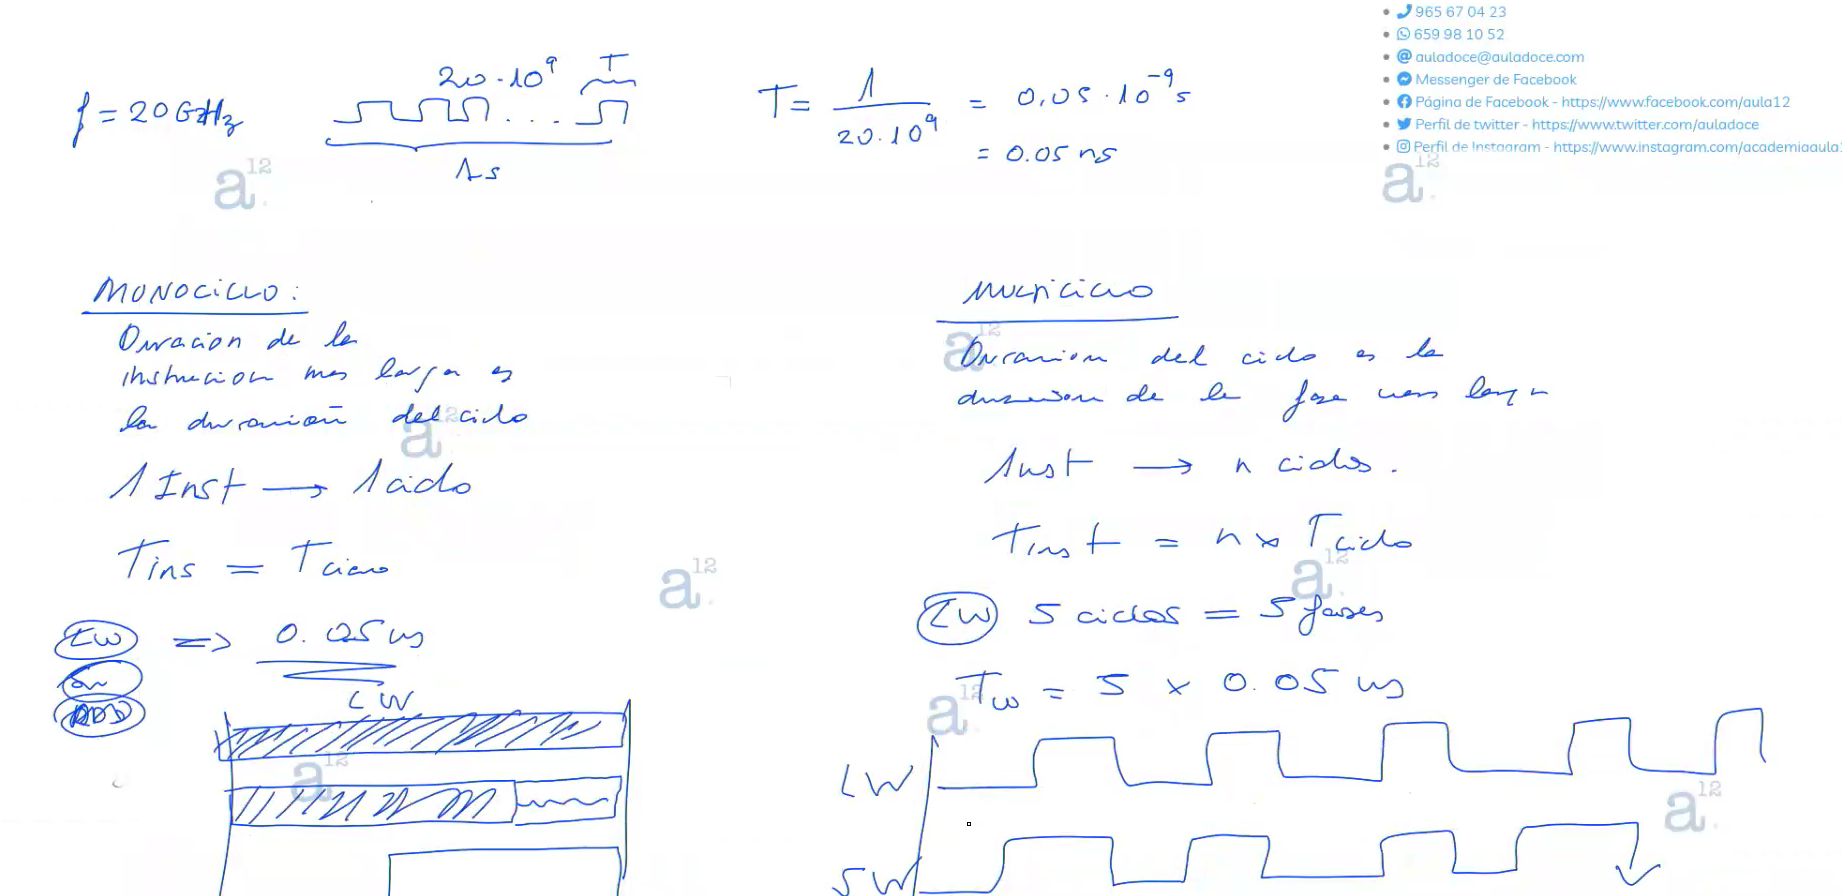 965 67 04 23
659 98 10 52
auladoce@auladoce.com
Messenger de Facebook
Página de Facebook - https://www.facebook.com/aula12
Perfil de twitter - https://www.twitter.com/auladoce
Perfil de Instagram - https://www.instagram.com/academiaaula
f = 20 GHz
20·10⁹
T
1s
T = 1 / 20·10⁹ = 0,05·10⁻⁹ s
= 0.05 ns
a12
a12
MONOCICLO:
Duracion de la
instrucion mas larga es
la duración del ciclo
1 Inst → 1 ciclo
Tins = Tciclo
LW => 0.05 ns
SW
ADD
LW
MULTICICLO
Duracion del ciclo es la
duracion de la fase mas larga
Inst → n ciclos.
Tinst = n x Tciclo
LW 5 ciclos = 5 fases
Tlw = 5 x 0.05 ns
LW
SW
a12
a12
a12
a12
a12
a12
a12